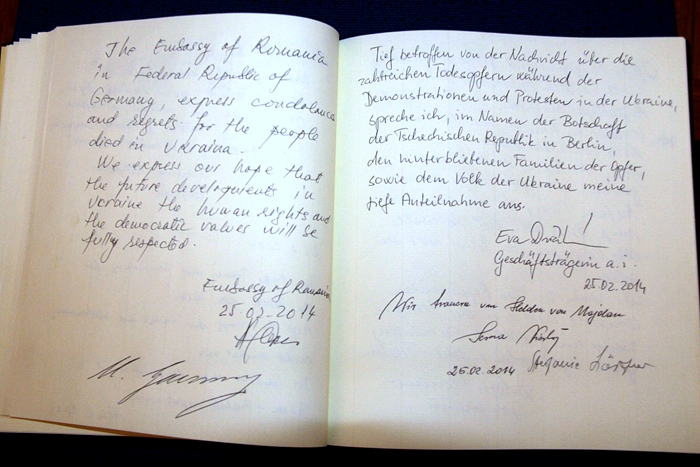 The Embassy of Romania
in Federal Republic of
Germany, express condolences
and regrets for the people
died in Ukraina.
We express our hope that
the future developments in
Ucraine the human rights and
the democratic values will be
fully respected.
Embassy of Romania
25.02-2014
Tief betroffen von der Nachricht über die
zahlreichen Todesopfern während der
Demonstrationen und Protesten in der Ukraine,
spreche ich, im Namen der Botschaft
der Tschechischen Republik in Berlin,
den hinterbliebenen Familien der Opfer,
sowie dem Volk der Ukraine meine
tiefe Anteilnahme aus.
Eva
Geschäftsträgerin a.i.
25.02.2014
Wir trauern um Helden von Majdan
25.02.2014 Stefanie